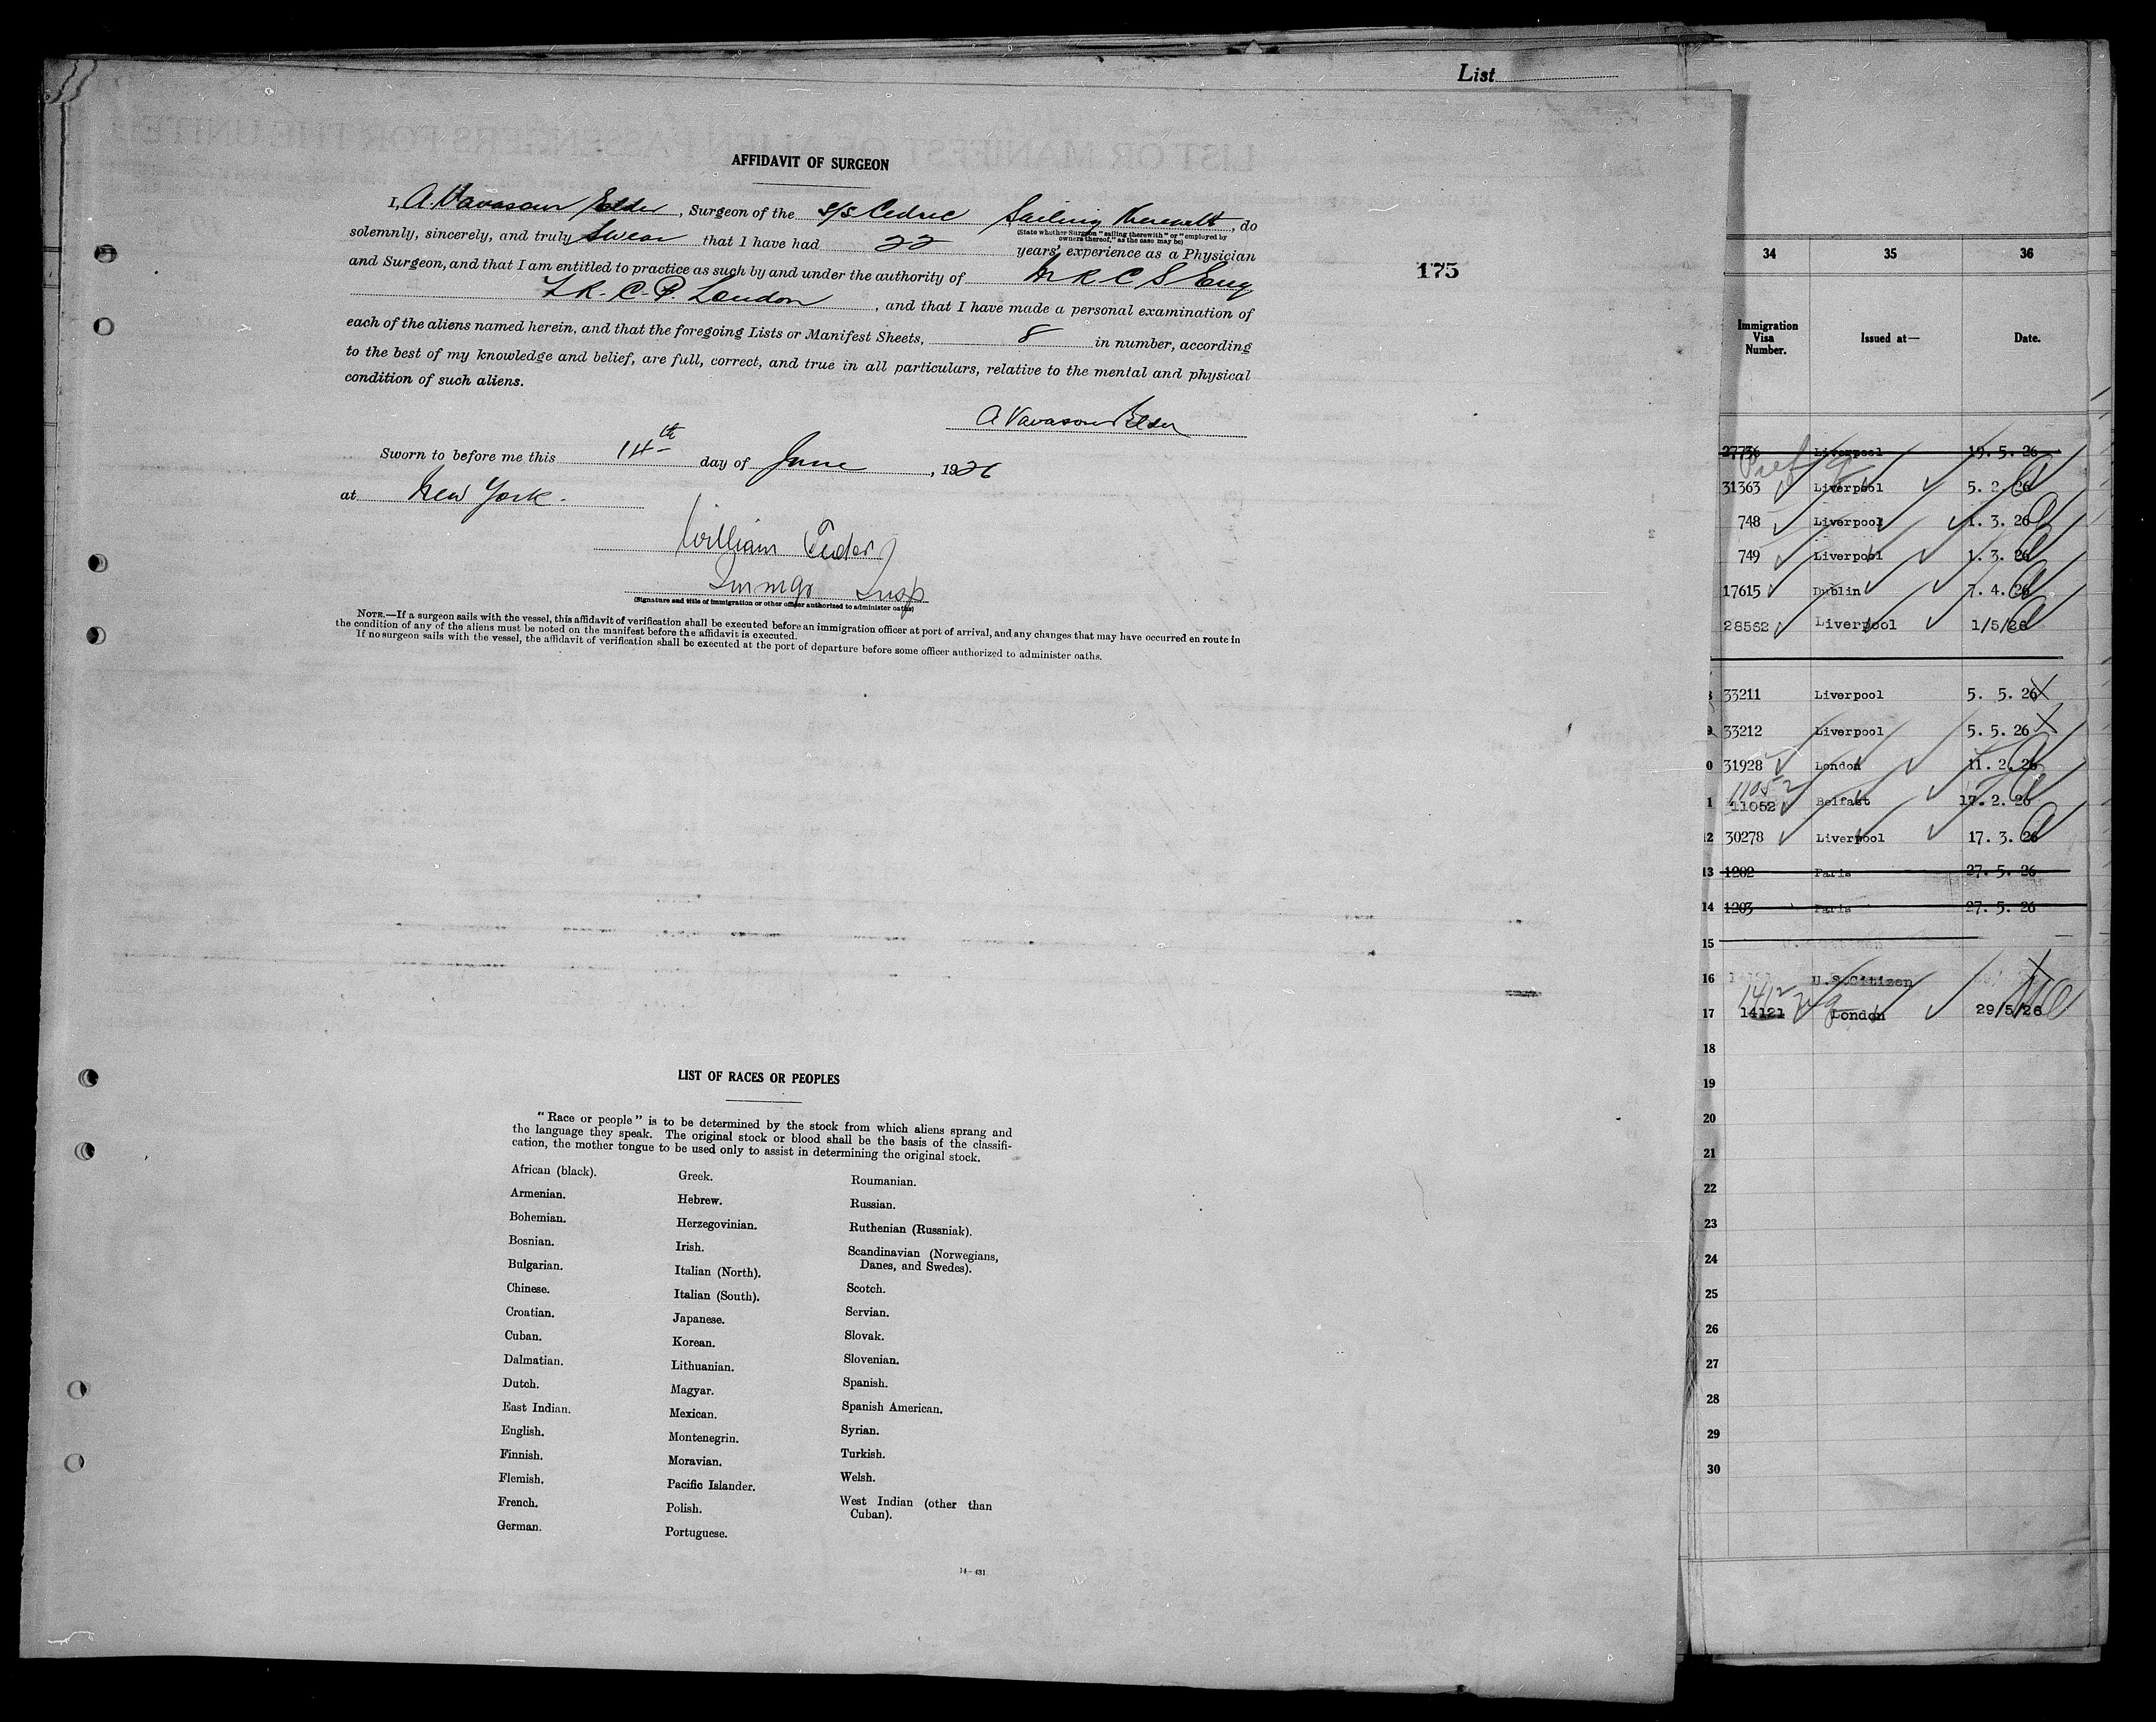 List
AFFIDAVIT OF SURGEON
I, A. Vavasour Elder, Surgeon of the s/s Cedric Sailing therewith, do
(State whether Surgeon "sailing therewith" or "employed by
owners thereof," as the case may be)
solemnly, sincerely, and truly swear that I have had 22 years' experience as a Physician
and Surgeon, and that I am entitled to practice as such by and under the authority of M R C S Eng
L R. C. P. London, and that I have made a personal examination of
each of the aliens named herein, and that the foregoing Lists or Manifest Sheets, 8 in number, according
to the best of my knowledge and belief, are full, correct, and true in all particulars, relative to the mental and physical
condition of such aliens.
A Vavasour Elder
Sworn to before me this 14th day of June, 1926
at New York.
William
Immgr Insp
(Signature and title of immigration or other officer authorized to administer oaths)
NOTE.—If a surgeon sails with the vessel, this affidavit of verification shall be executed before an immigration officer at port of arrival, and any changes that may have occurred en route in
the condition of any of the aliens must be noted on the manifest before the affidavit is executed.
If no surgeon sails with the vessel, the affidavit of verification shall be executed at the port of departure before some officer authorized to administer oaths.
175
LIST OF RACES OR PEOPLES
"Race or people" is to be determined by the stock from which aliens sprang and
the language they speak. The original stock or blood shall be the basis of the classifi-
cation, the mother tongue to be used only to assist in determining the original stock.
African (black).
Armenian.
Bohemian.
Bosnian.
Bulgarian.
Chinese.
Croatian.
Cuban.
Dalmatian.
Dutch.
East Indian.
English.
Finnish.
Flemish.
French.
German.
Greek.
Hebrew.
Herzegovinian.
Irish.
Italian (North).
Italian (South).
Japanese.
Korean.
Lithuanian.
Magyar.
Mexican.
Montenegrin.
Moravian.
Pacific Islander.
Polish.
Portuguese.
Roumanian.
Russian.
Ruthenian (Russniak).
Scandinavian (Norwegians,
Danes, and Swedes).
Scotch.
Servian.
Slovak.
Slovenian.
Spanish.
Spanish American.
Syrian.
Turkish.
Welsh.
West Indian (other than
Cuban).
14—431
34 35 36
Immigration
Visa
Number.
Issued at—
Date.
27736 Liverpool 19. 5. 26
31363 Liverpool 5. 2. 26
748 Liverpool 1. 3. 26
749 Liverpool 1. 3. 26
17615 Dublin 7. 4. 26
28562 Liverpool 1/5/26
33211 Liverpool 5. 5. 26
33212 Liverpool 5. 5. 26
31928 London 11. 2. 26
11052
11052 Belfast 17. 2. 26
12 30278 Liverpool 17. 3. 26
13 1202 Paris 27. 5. 26
14 1203 Paris 27. 5. 26
15
16 U.S.Citizen
17 14121 London 29/5/26
18
19
20
21
22
23
24
25
26
27
28
29
30